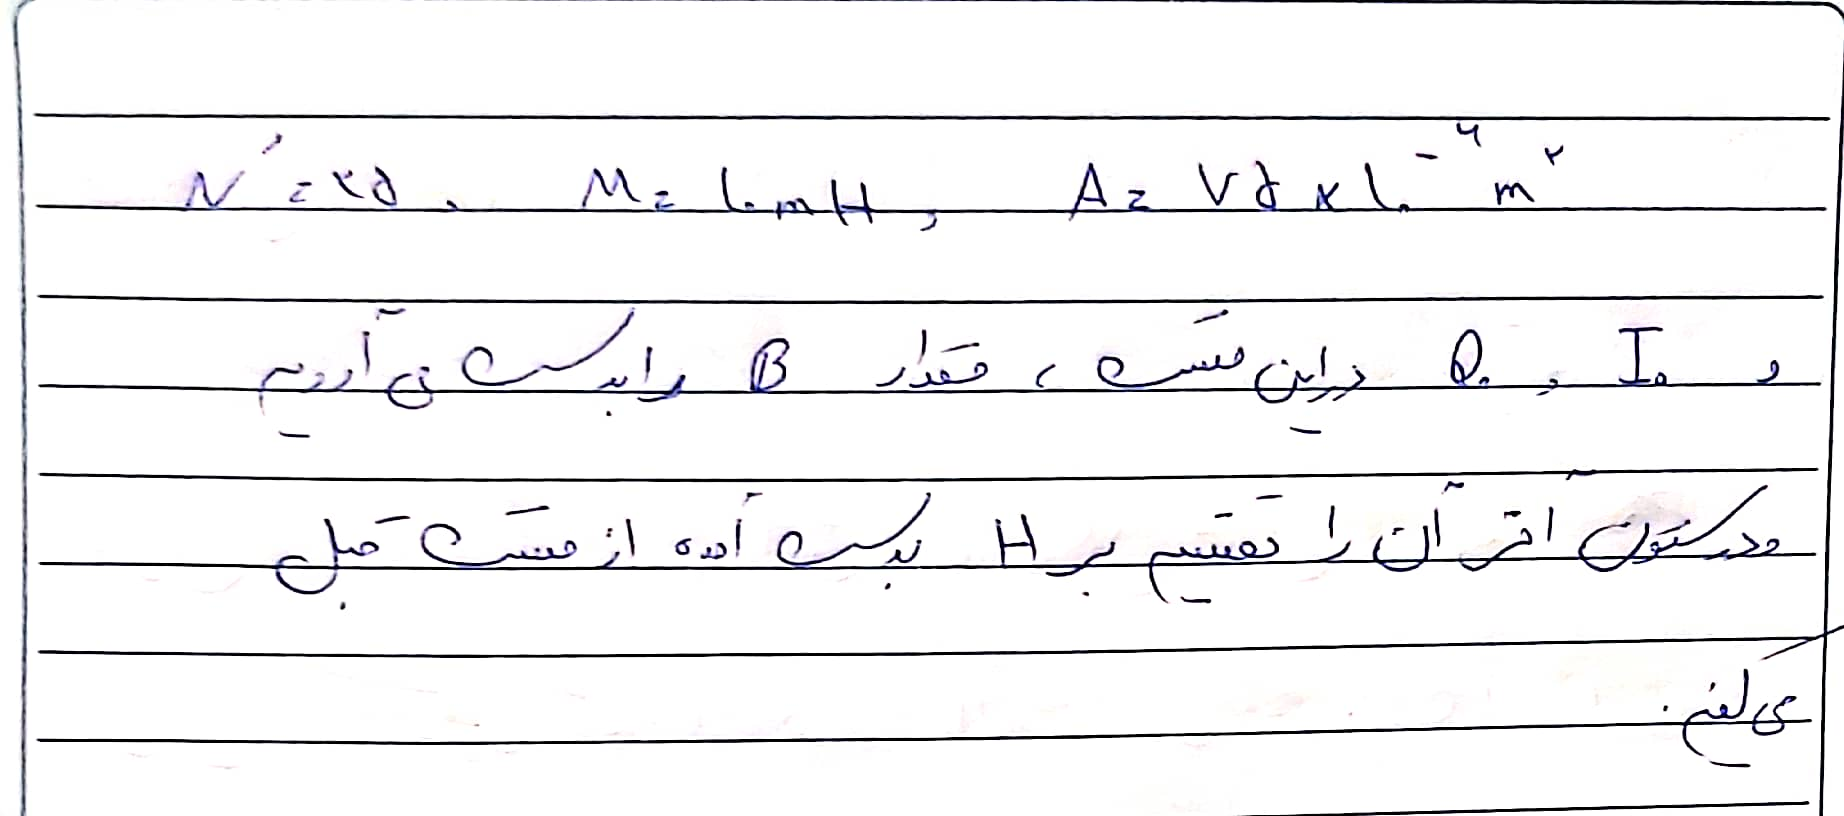 N' = ۲۵ , M = ۱۰ mH , A = ۷۵ × ۱۰⁻⁶ m²
و I₀ و Q₀ دراین قسمت ، مقدار B را بدست می آوریم
ودرستون آخر آن را تقسیم بر H بدست آمده از قسمت قبل
می کنیم .